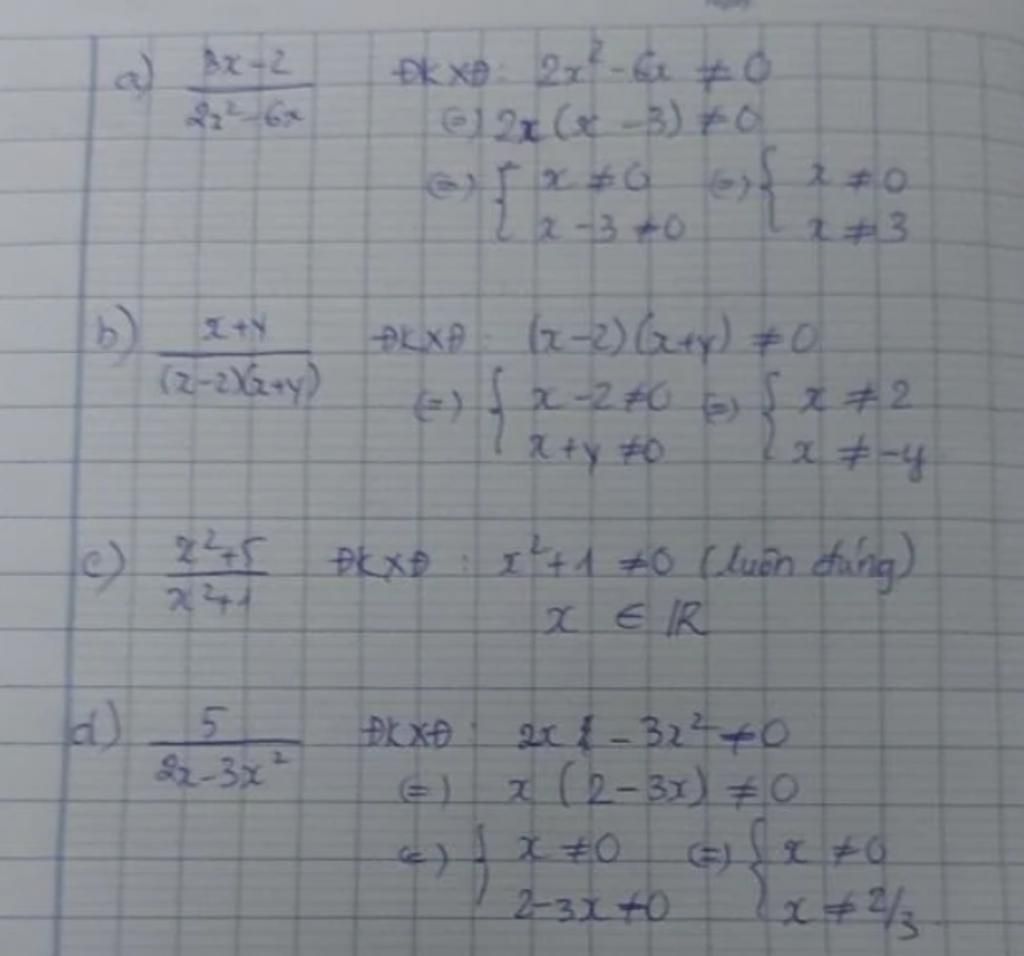 a) 3x-2/2x²-6x ĐKXĐ: 2x² - 6x ≠ 0
(=) 2x(x - 3) ≠ 0
(=) { x ≠ 0 (=) { x ≠ 0
x - 3 ≠ 0 x ≠ 3
b) x+y/(x-2)(x+y) ĐKXĐ: (x-2)(x+y) ≠ 0
(=) { x - 2 ≠ 0 (=) { x ≠ 2
x + y ≠ 0 x ≠ -y
c) x²+5/x²+1 ĐKXĐ: x²+1 ≠ 0 (luôn đúng)
x ∈ R
d) 5/2x-3x² ĐKXĐ: 2x - 3x² ≠ 0
(=) x (2 - 3x) ≠ 0
(=) { x ≠ 0 (=) { x ≠ 0
2-3x ≠ 0 x ≠ 2/3